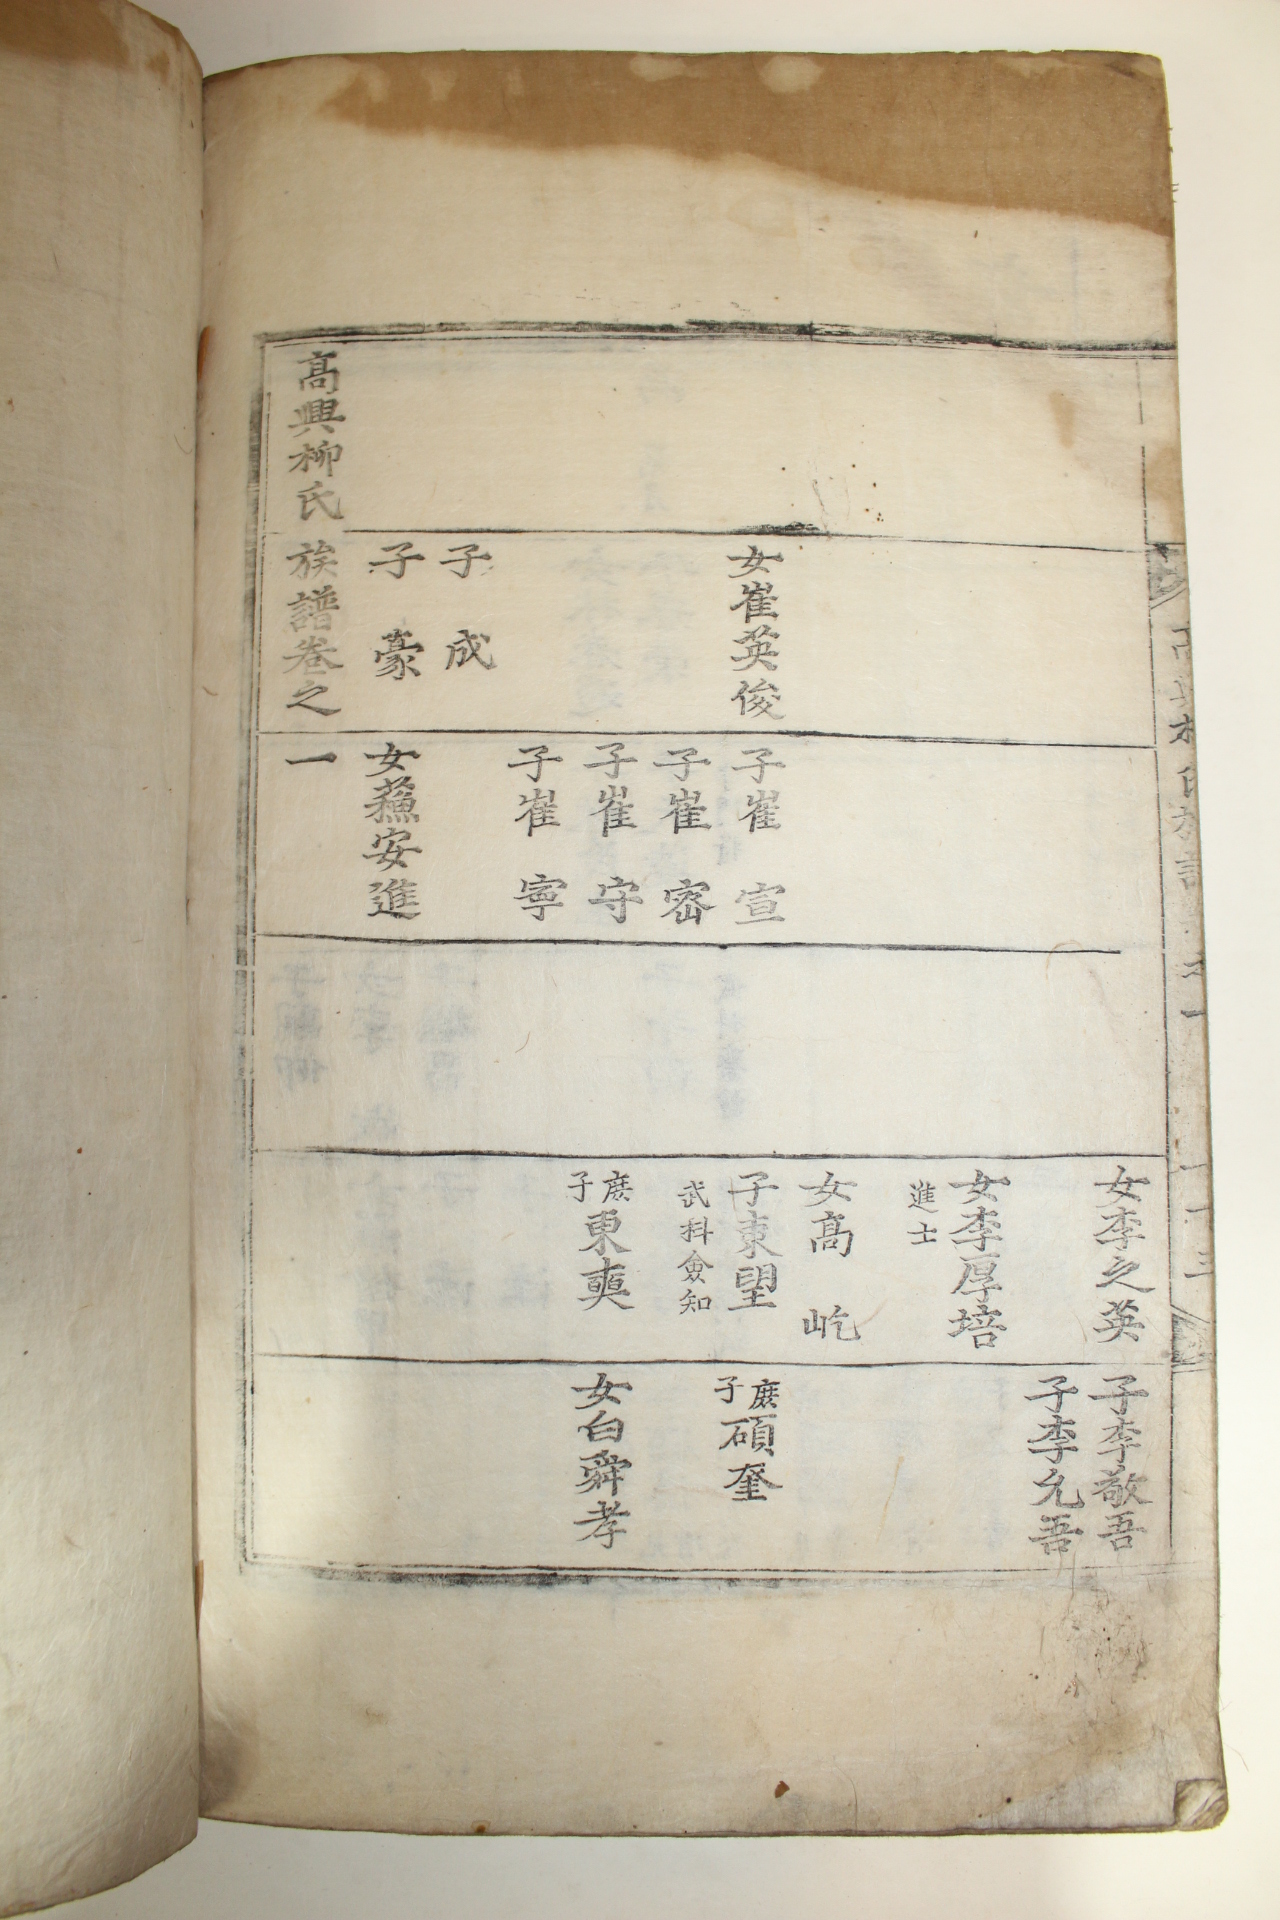 女崔英俊
子成
子豪
子崔宣
子崔密
子崔守
子崔寧
女蘓安進
女李之英
女李厚培
進士
女高屹
子東望
武科僉知
庶子東奭
子李敬吾
子李允吾
庶子碩奎
女白舜孝
高興柳氏族譜卷之一